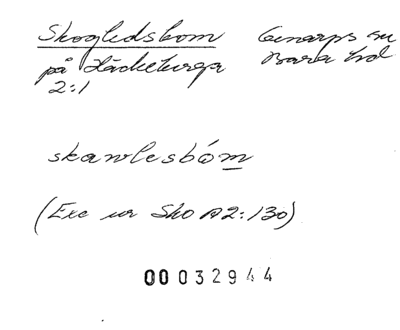 Skogledsbom Genarps sn
på Häckeberga Bara hd
2:1
skawlesbóm
(Exc ur Sko A2:130)
00032944